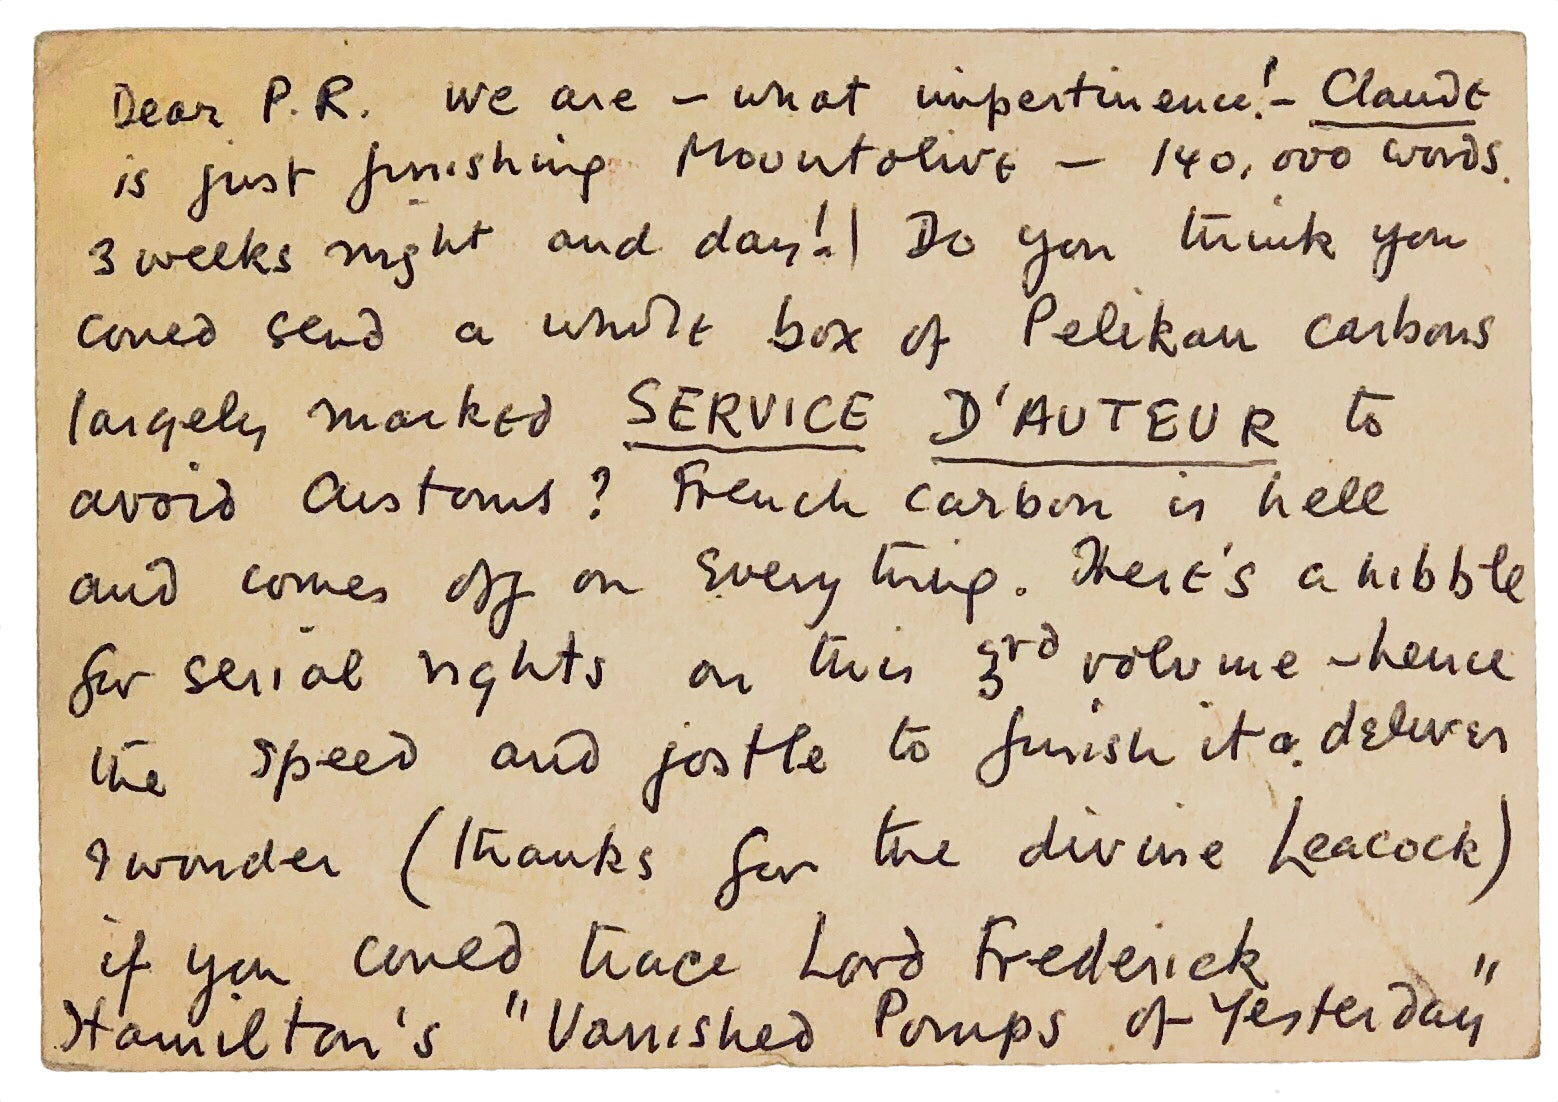 Dear P.R. we are – what impertinence! – Claude
is just finishing Mountolive – 140,000 words.
3 weeks night and day!! Do you think you
could send a whole box of Pelikan carbons
largely marked SERVICE D'AUTEUR to
avoid Customs? French carbon is hell
and comes off on everything. There's a nibble
for serial rights on this 3rd volume – hence
the speed and jostle to finish it & deliver
I wonder (thanks for the divine Leacock)
if you could trace Lord Frederick
Hamilton's "Vanished Pomps of Yesterday"